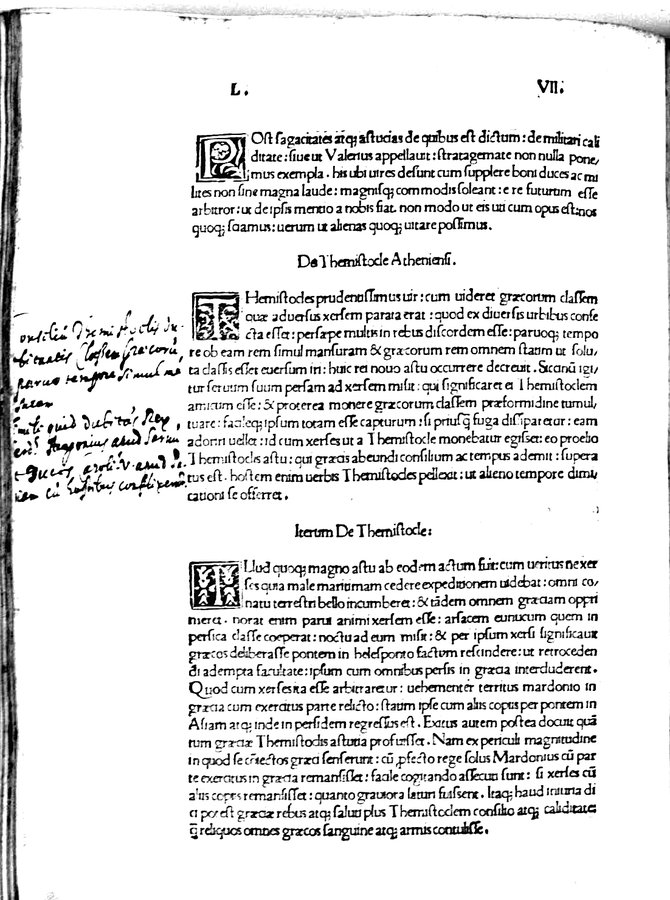 L. VII.
POst sagacitates atq; astucias de quibus est dictum: de militari cali
ditate: siue ut Valerius appellauit: stratagemate non nulla pone,
mus exempla. his ubi uires desunt cum supplere boni duces ac mi
lites non sine magna laude: magnisq; commodis soleant: e re futurum esse
arbitror: ut de ipsis mentio a nobis fiat. non modo ut eis uti cum opus est: nos
quoq; sciamus: uerum ut alienas quoq; uitare possimus.
De Themistocle Atheniensi.
THemistocles prudentissimus uir: cum uideret græcorum classem
quæ aduersus xersem parata erat: quod ex diuersis urbibus confe
cta esset: persæpe multis in rebus discordem esse: paruoq; tempo
re ob eam rem simul mansuram & græcorum rem omnem statim ut solu,
ta classis esset euersum iri: huic rei nouo astu occurrere decreuit. Sicanū igi,
tur seruum suum persam ad xersem misit: qui significaret ei Themistoclem
amicum esse: & proterea monere græcorum classem præformidine tumul,
tuare: facileq; ipsum totam esse capturum: si priusq̄ fuga dissiparetur: eam
adoriri uellet: id cum xerses ut a Themistocle monebatur egisset: eo prœlio
Themistoclis astu: qui græcis abeundi consilium ac tempus ademit: supera
tus est. hostem enim uerbis Themistocles pellexit: ut alieno tempore dimi,
cationi se offerret.
Iterum De Themistocle:
ILlud quoq; magno astu ab eodem actum fuit: cum ueritus ne xer
ses quia male maritimam cedere expeditionem uidebat: omni co,
natu terrestri bello incumberet: & tādem omnem græciam oppri
meret. norat enim parui animi xersem esse: arsacem eunucum quem in
persica classe cœperat: noctu ad eum misit: & per ipsum xersi significauit
græcos deliberasse pontem in helesponto factum rescindere: ut retroceden
di adempta facultate: ipsum cum omnibus persis in græcia intercluderent.
Quod cum xerses ita esse arbitraretur: uehementer territus mardonio in
græcia cum exercitus parte relicto: statim ipse cum aliis copiis per pontem in
Asiam atq; inde in persidem regressus est. Exitus autem postea docuit quā
tum græciæ Themistoclis astutia profuisset. Nam ex periculi magnitudine
in quod se cōiectos græci senserunt: cū p̱fecto rege solus Mardonius cū par
te exercitus in græcia remansisset: facile cogitando assecuti sunt: si xerses cū
aliis copiis remansisset: quanto grauiora laturi fuissent. Itaq; haud iniuria di
ci potest græciæ rebus atq; saluti plus Themistoclem consilio atq; caliditate
q̄ reliquos omnes græcos sanguine atq; armis contulisse.